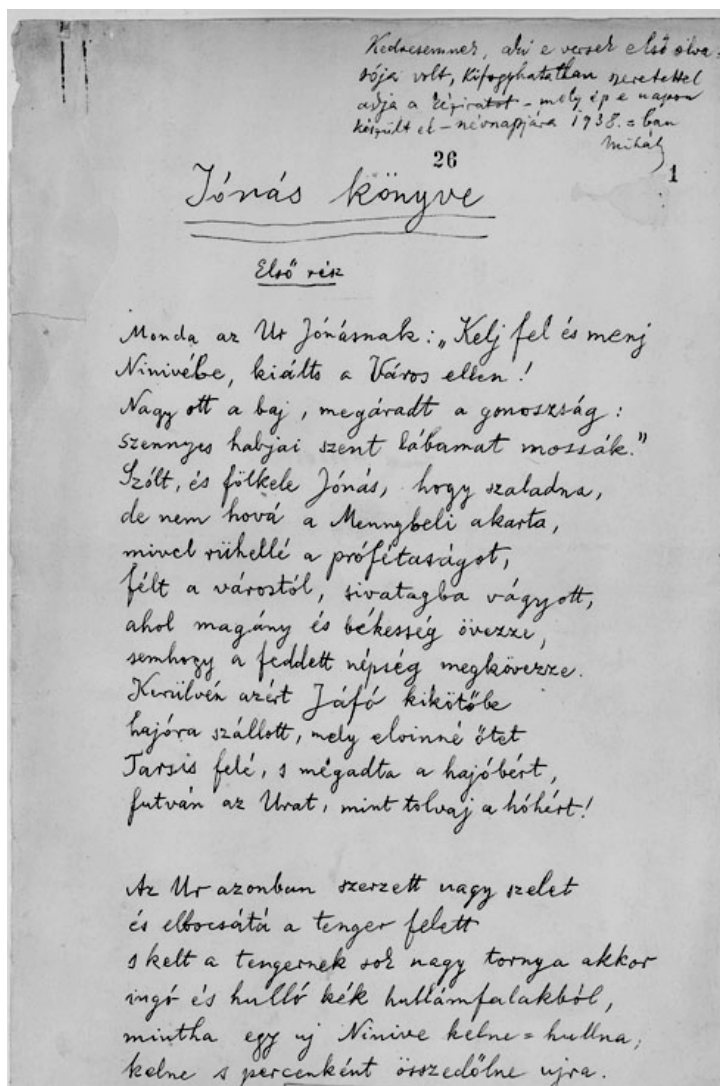 Kedvesemnek, aki e versek első olva-
sója volt, kifogyhatatlan szeretettel
adja a kéziratot – mely ép e napon
készült el – névnapjára 1938.-ban
Mihály
26
1
Jónás könyve
Első rész
Monda az Ur Jónásnak: „Kelj fel és menj
Ninivébe, kiálts a Város ellen!
Nagy ott a baj, megáradt a gonoszság:
szennyes habjai szent lábamat mossák.”
Szólt, és fölkele Jónás, hogy szaladna,
de nem hová a Mennybeli akarta,
mivel rühellé a prófétaságot,
félt a várostól, sivatagba vágyott,
ahol magány és békesség övezze,
semhogy a feddett népség megkövezze.
Kerülvén azért Jáfó kikötőbe
hajóra szállott, mely elvinné őtet
Tarsis felé, s megadta a hajóbért,
futván az Urat, mint tolvaj a hóhért!
Az Ur azonban szerzett nagy szelet
és elbocsátá a tenger felett
s kelt a tengernek sok nagy tornya akkor
ingó és hulló kék hullámfalakból,
mintha egy uj Ninive kelne-hullna,
kelne s percenként összedőlne ujra.